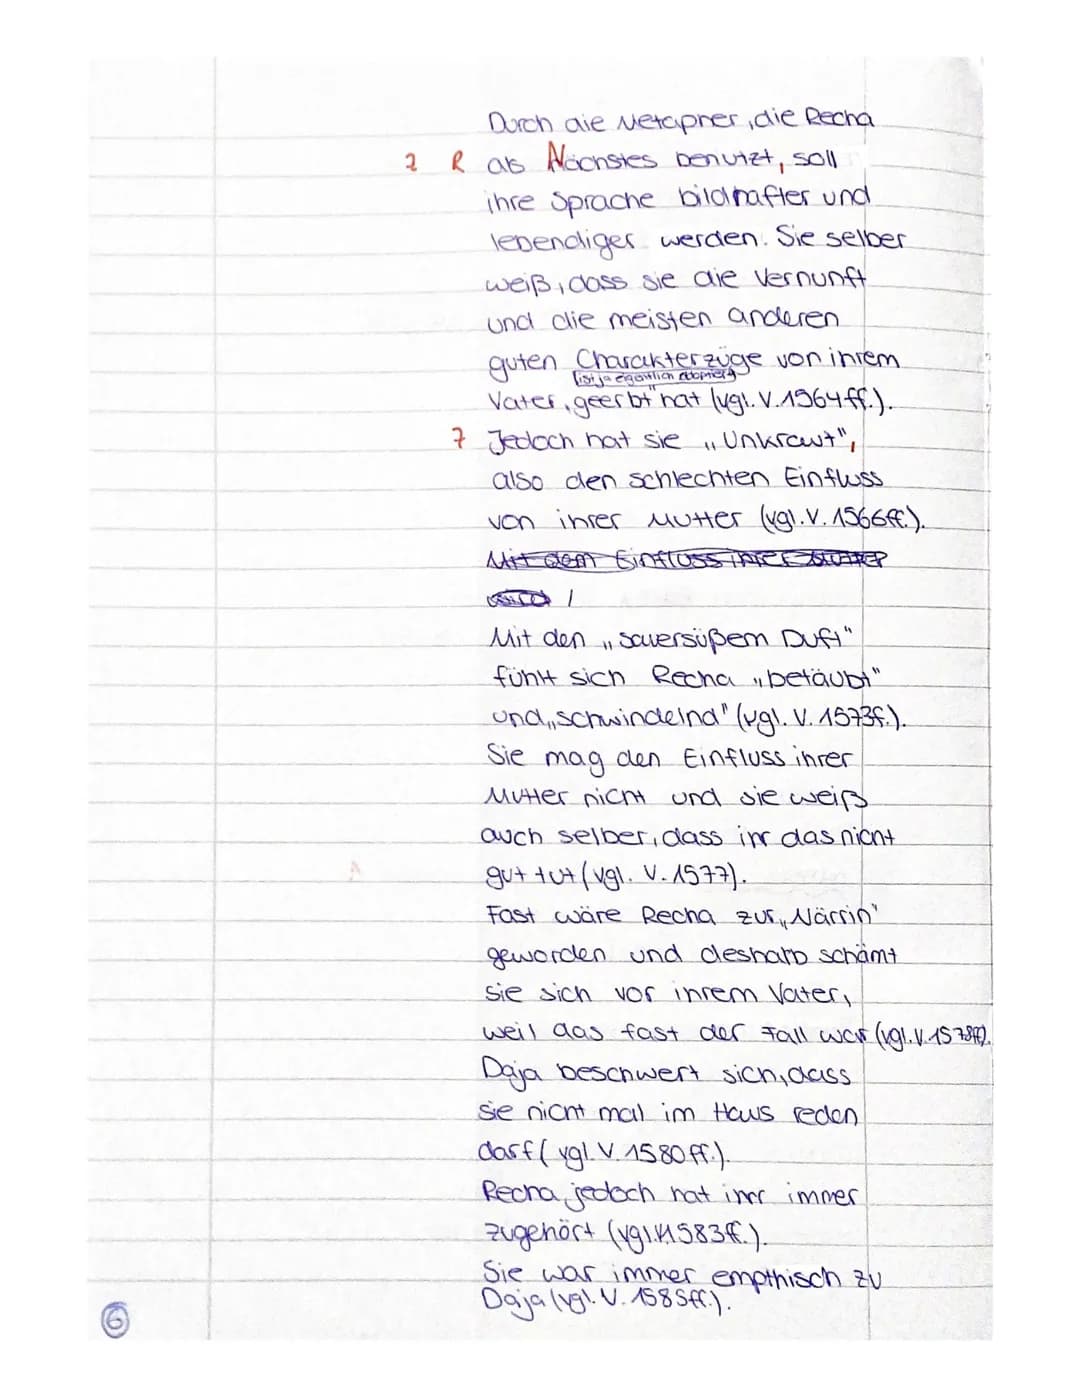 Durch die Metapher, die Recha
2 R als Nächstes benutzt, soll
ihre Sprache bildhafter und
lebendiger werden. Sie selber
weiß, dass sie die Vernunft
und die meisten anderen
guten Charakterzüge von ihrem
(ist ja eigentlich adoptiert)
Vater „geerbt" hat (vgl. V. 1564 ff.).
7 Jedoch hat sie „Unkraut",
also den schlechten Einfluss
von ihrer Mutter (vgl. V. 1566ff.).
Mit dem Einfluss ihrer Mutter
wird /
Mit den „sauersüßem Duft"
fühlt sich Recha „betäubt"
und „schwindelnd" (vgl. V. 1573f.).
Sie mag den Einfluss ihrer
Mutter nicht und sie weiß
auch selber, dass ihr das nicht
gut tut (vgl. V. 1577).
Fast wäre Recha zur „Närrin"
geworden und deshalb schämt
sie sich vor ihrem Vater,
weil das fast der Fall war (vgl. V. 1578ff).
Daja beschwert sich, dass
sie nicht mal im Haus reden
darf (vgl. V. 1580 ff.).
Recha jedoch hat ihr immer
zugehört (vgl. V. 1583ff.).
Sie war immer empthisch zu
Daja (vgl. V. 1585ff.).
6